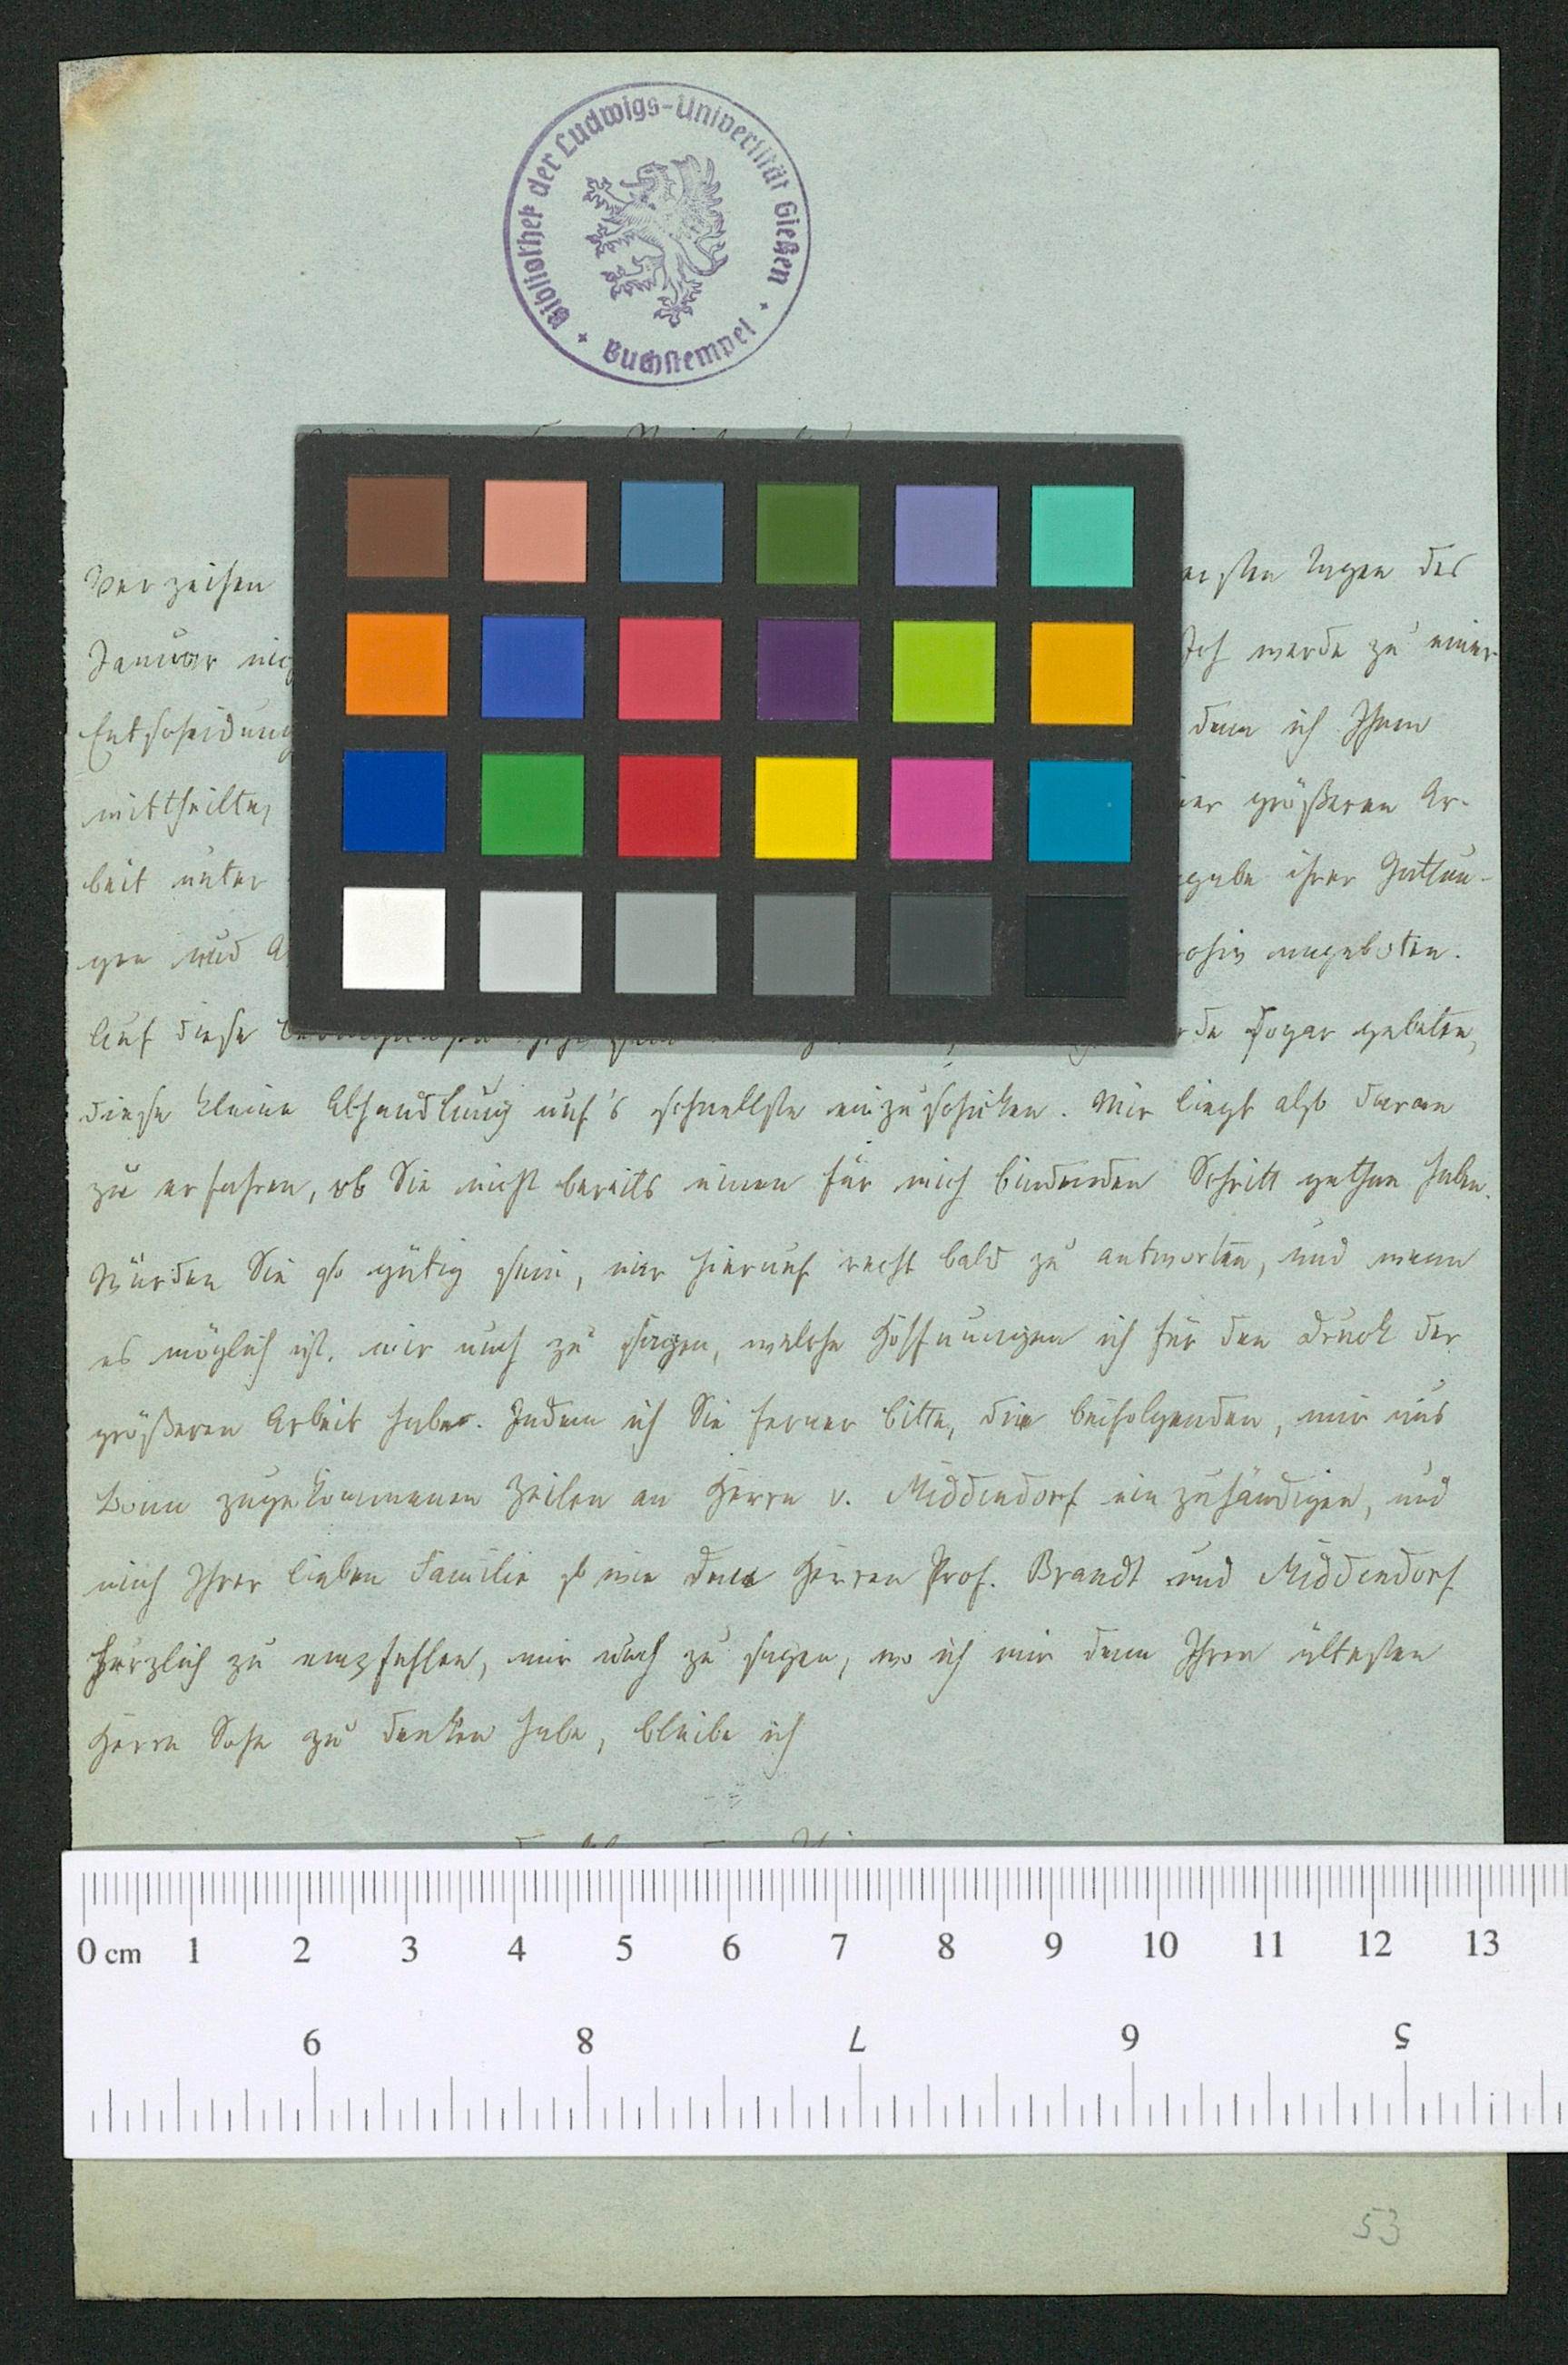 Bibliothek der Ludwigs-Universität Gießen
Buchstempel
Verzeihen ersten Tagen des
Januar Ich werde zu einer
Entscheidung denn ich Ihnen
mittheilte, größeren Ar-
beit unter ihrer Gattun-
gen und angeboten.
Auf diese sogar gebeten,
diese kleine Abhandlung auf's schnellste einzuschicken. Mir liegt also daran
zu erfahren, ob Sie nicht bereits einen für mich bindenden Schritt gethan haben.
Würden Sie so gütig sein, mir hierauf recht bald zu antworten, und wenn
es möglich ist, mir auch zu sagen, welche Hoffnungen ich für den Druck der
größeren Arbeit habe. Indem ich Sie ferner bitte, die beifolgenden, mir aus
Bonn zugekommenen Zeilen an Herrn v. Middendorf einzuhändigen, und
mich Ihrer lieben Familie so wie den Herren Prof. Brandt und Middendorf
herzlich zu empfehlen, mir auch zu sagen, wo ich mir denn Ihren ältesten
Herrn Sohn zu denken habe, bleibe ich
0 cm 1 2 3 4 5 6 7 8 9 10 11 12 13
9 8 7 6 5
53